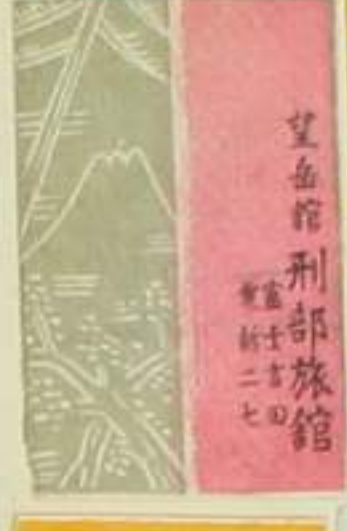 望岳館 刑部旅館
富士吉田
電話二七